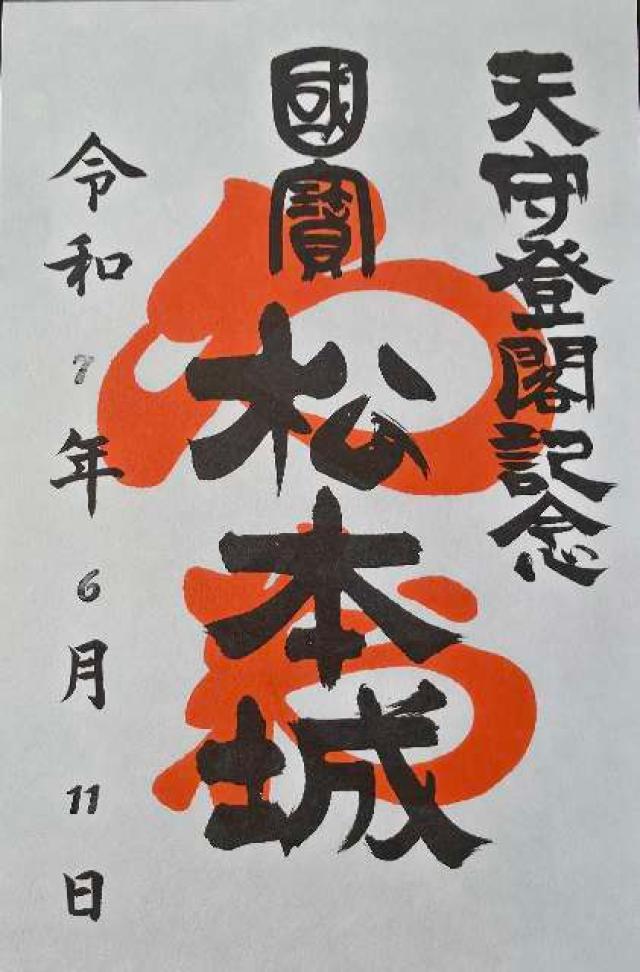 天守登閣記念
國寶
松本城
令和7年6月11日